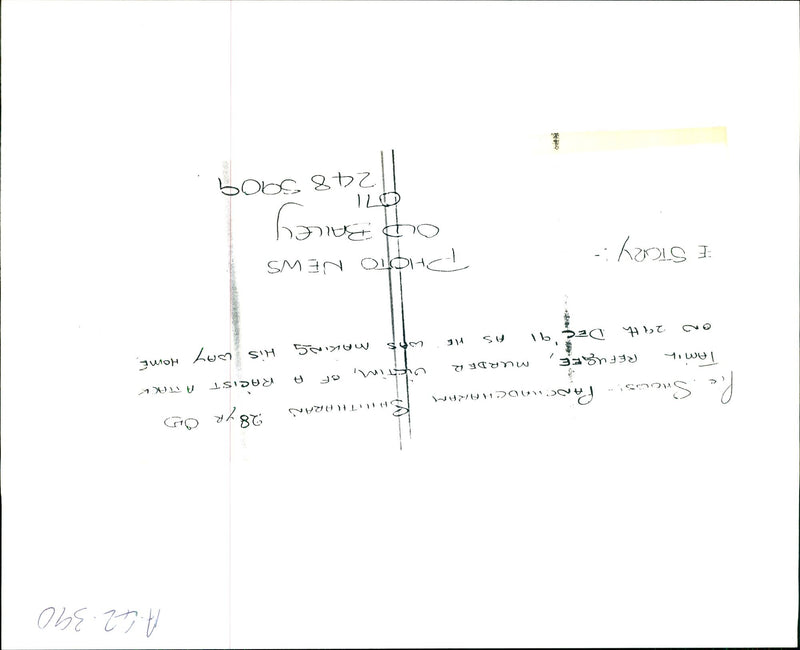 A.42.390
Pic Shows:- PANCHADCHARAM SAHITHARAN 28 YR OLD
TAMIL REFUGEE, MURDER VICTIM, OF A RACIST ATTAKK
ON 29th DEC '91 AS HE WAS MAKING HIS WAY HOME.
E STORY:-
PHOTO NEWS
OLD BAILEY
071
248 5909